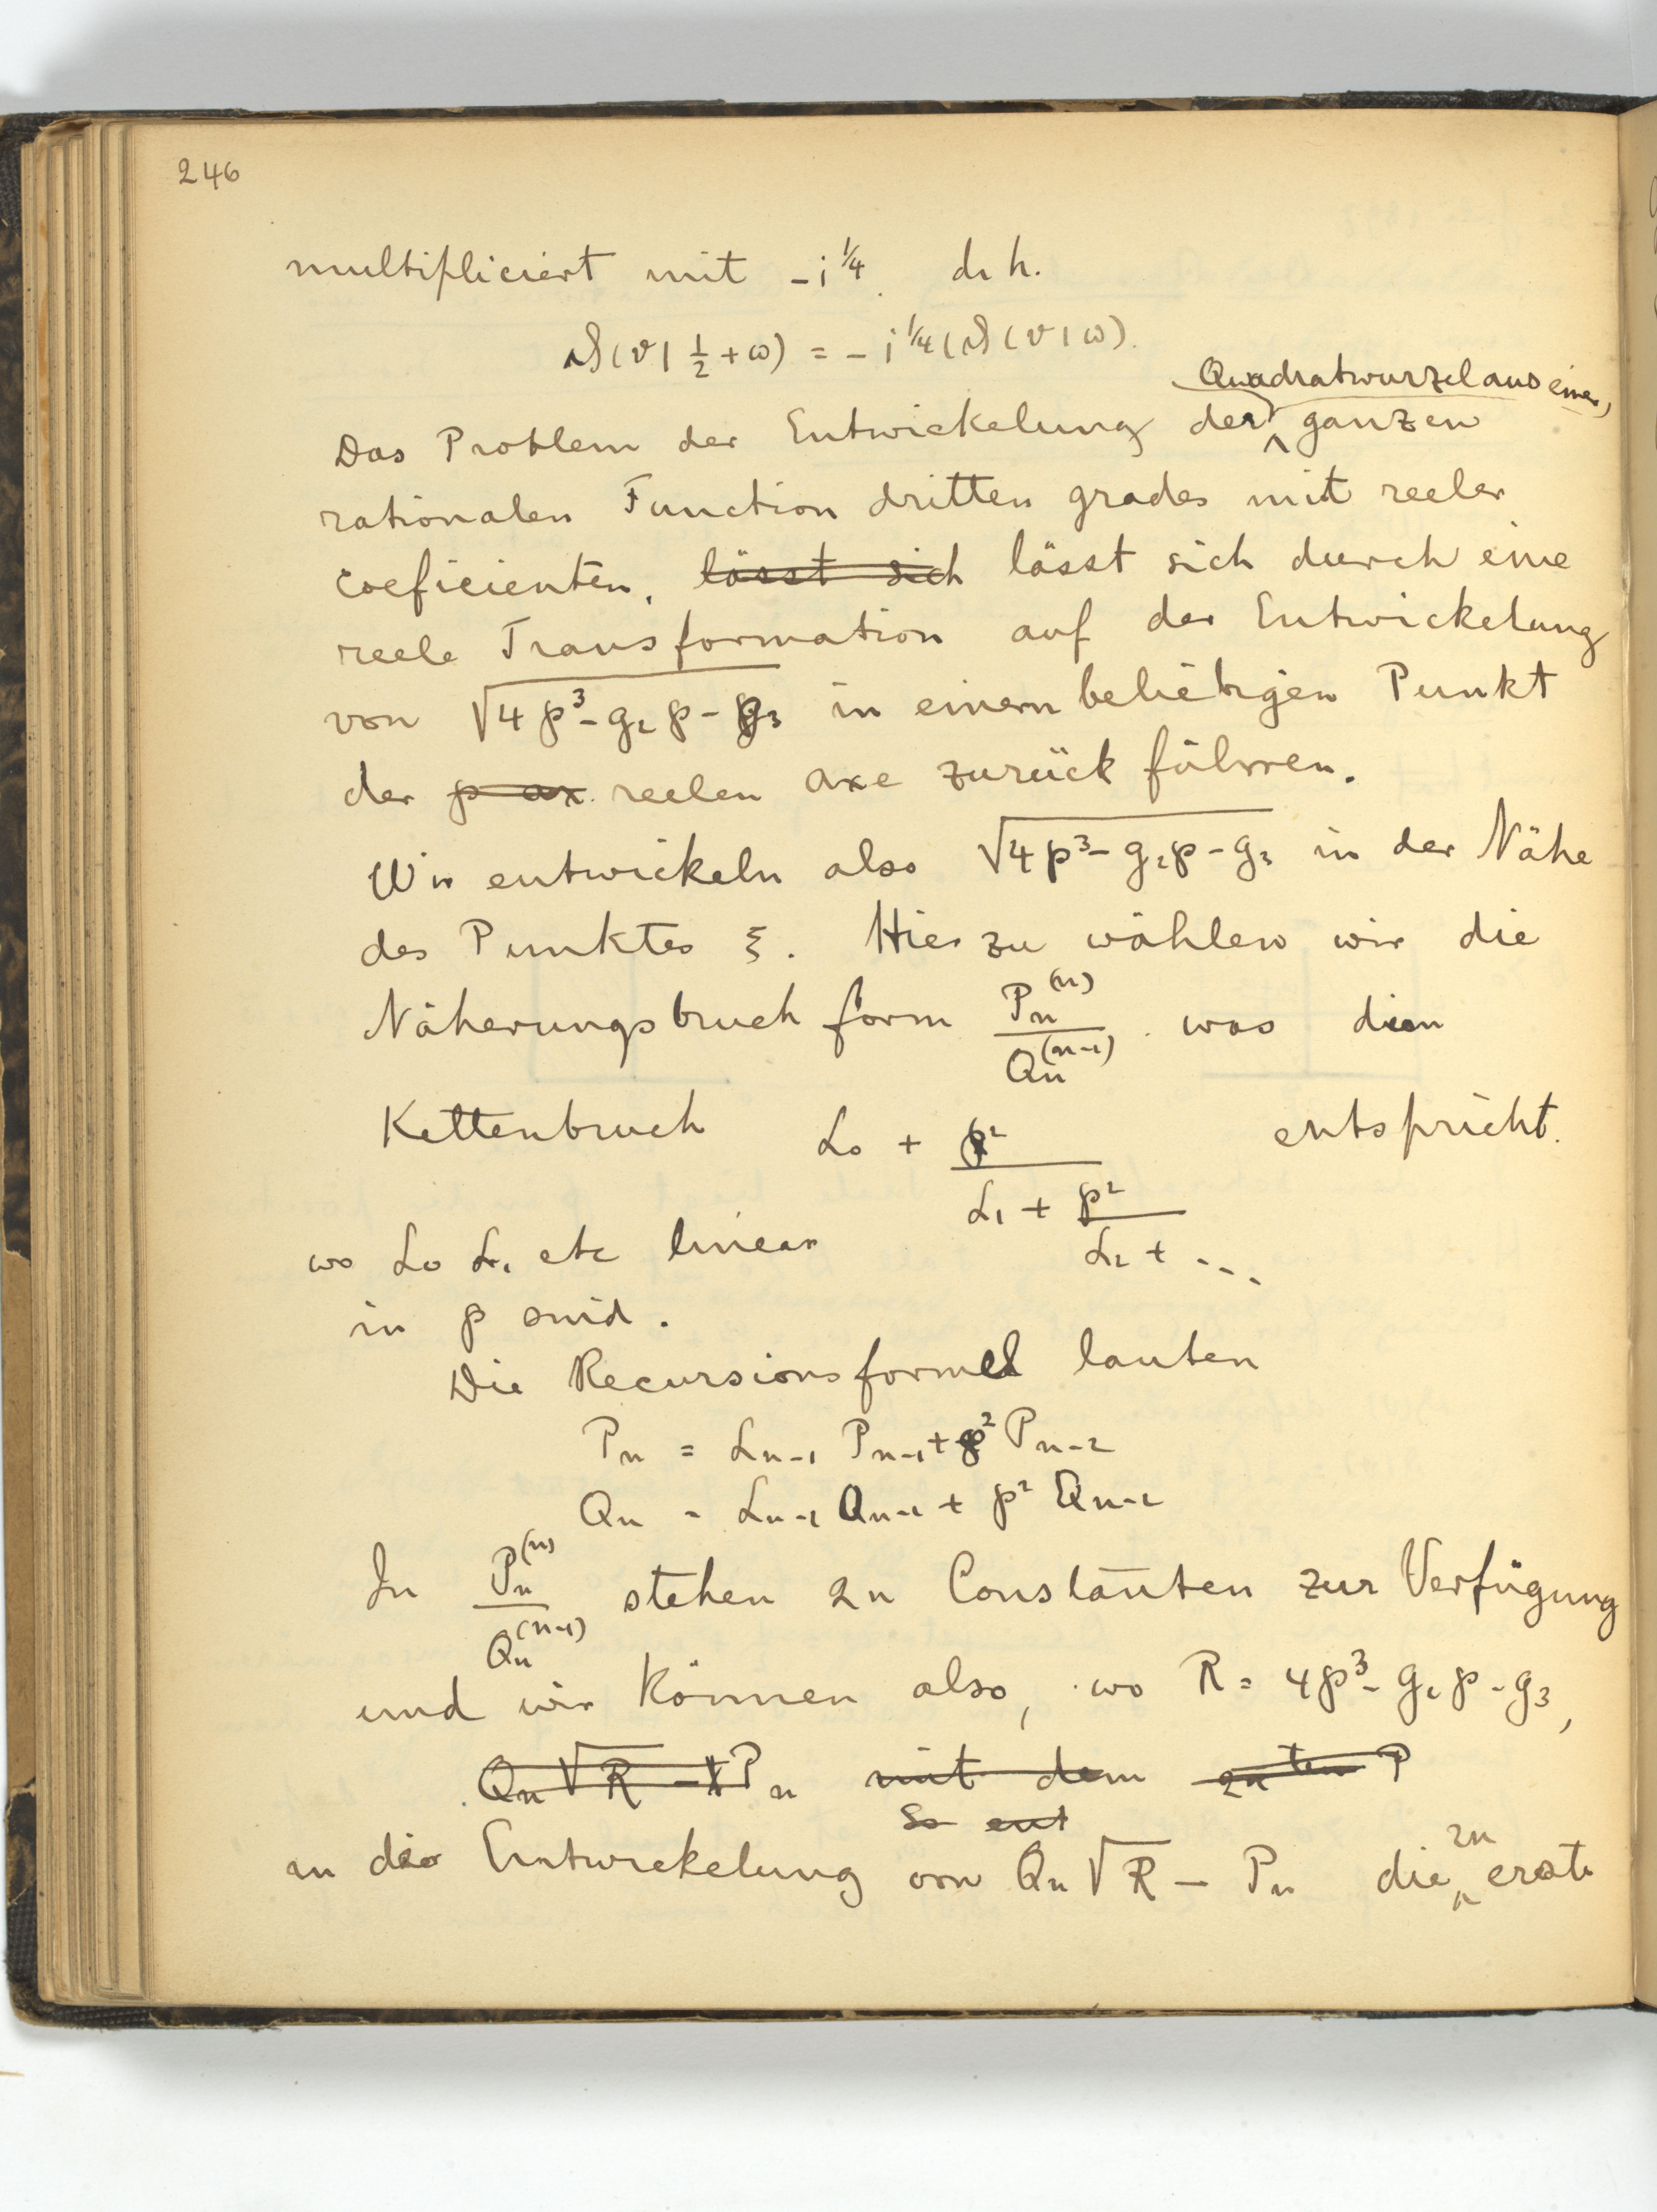 246
multipliciert mit -i^{1/4}. d. h.
ϑ(v | 1/2 + ω) = - i^{1/4} (ϑ(v | ω).
Quadratwurzel aus einer,
Das Problem der Entwickelung der ganzen
rationalen Function dritten grades mit reeler
Coeficienten, lässt sich lässt sich durch eine
reele Transformation auf der Entwickelung
von √(4p³ - g₂p - g₃) in einem beliebigen Punkt
der p ax. reelen Axe zurück führen.
Wir entwickeln also √(4p³ - g₂p - g₃) in der Nähe
des Punktes ξ. Hierzu wählen wir die
Näherungsbruch form Pn^{(n)} / Qn^{(n-1)} . was dem
Kettenbruch L₀ + p² / (L₁ + p² / (L₂ + ... entspricht.
wo L₀ L₁ etc linear
in p sind.
Die Recursionsformel lauten
Pn = Ln-1 Pn-1 + p² Pn-2
Qn = Ln-1 Qn-1 + p² Qn-2
In Pn^{(n)} / Qn^{(n-1)} stehen 2n Constanten zur Verfügung
und wir können also, wo R = 4p³ - g₂p - g₃,
Qn √R - Pn mit dem 2n ten P
So ent
in die Entwickelung von Qn √R - Pn die 2n erste